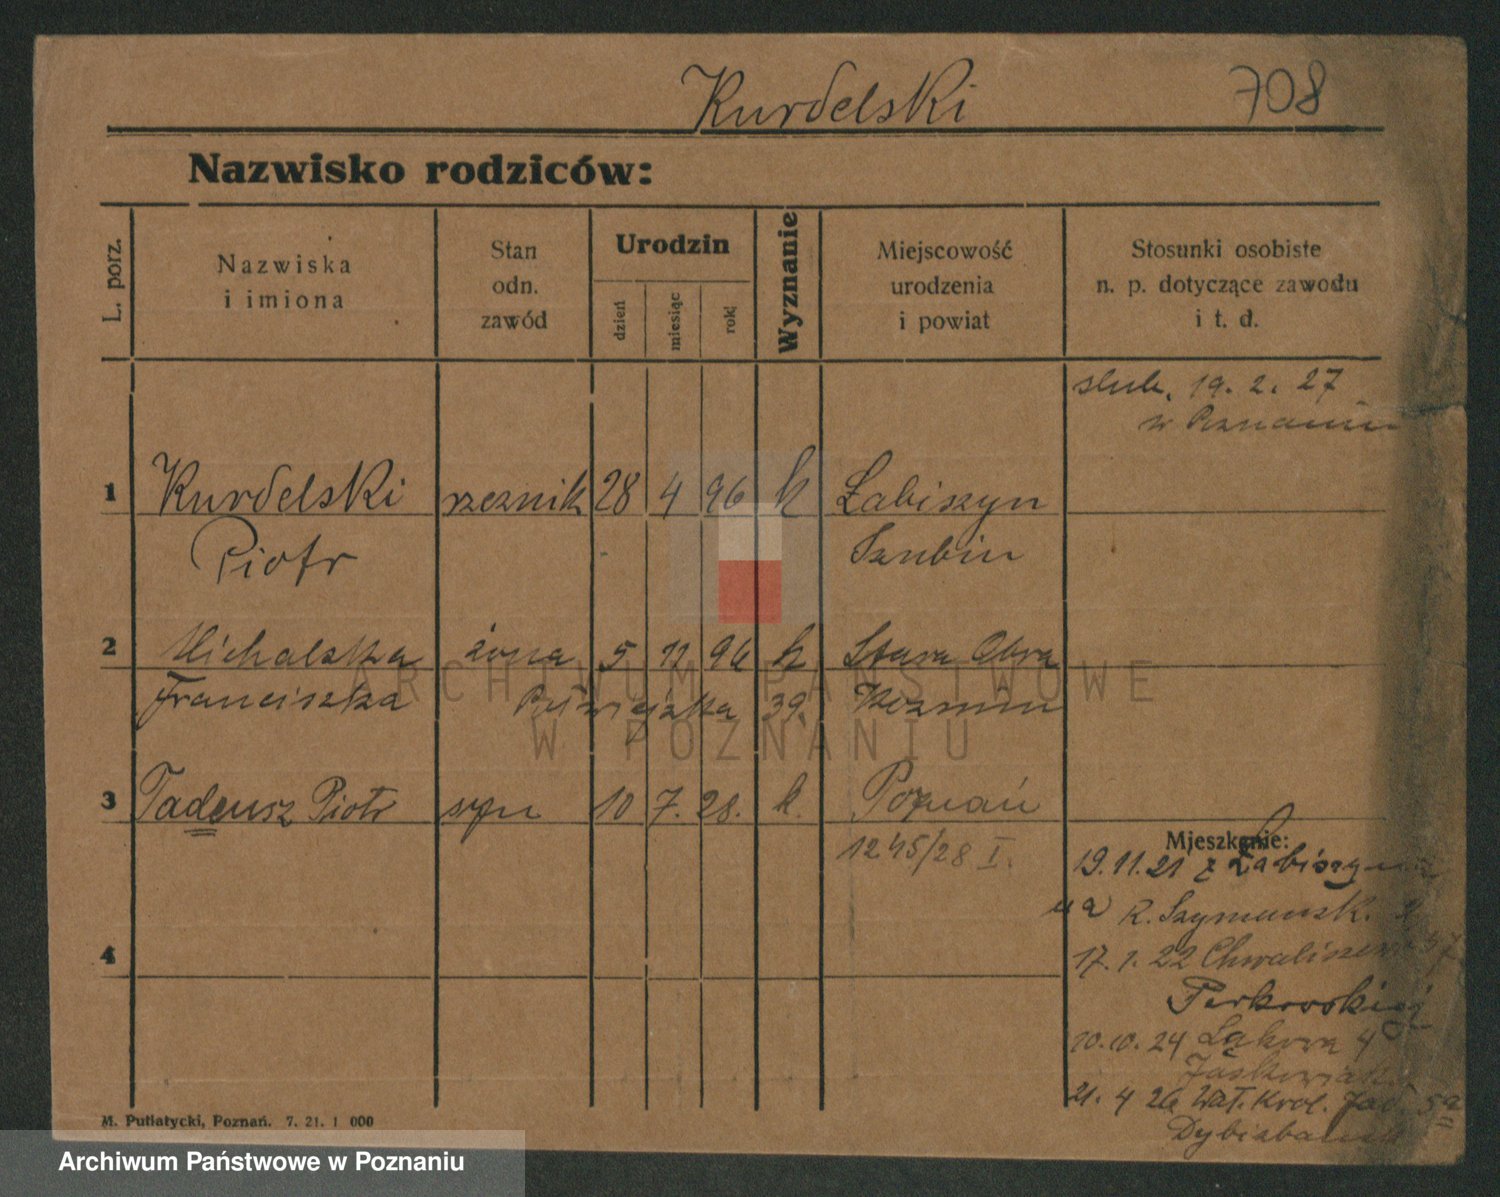 Kurdelski 708
Nazwisko rodziców:
L. porz.
Nazwiska
i imiona
Stan
odn.
zawód
Urodzin
dzień
miesiąc
rok
Wyznanie
Miejscowość
urodzenia
i powiat
Stosunki osobiste
n. p. dotyczące zawodu
i t. d.
19. 2. 27
w Poznaniu
1 Kurdelski rzeznik 28 4 96 k Łabiszyn
Piotr Szubin
2 Michalska żona 5 11 96 k Stara Obra
Franciszka 39. Kozmin
3 Tadeusz Piotr syn 10 7. 28. k. Poznań
1245/28 I.
Mieszkanie:
19.11.21 z Łabiszyna
R. Szymansk.
4
17. 1. 22 Chwaliszewo
10.10.24 Łąkowa 4
21. 4 26 Wał. Krol. Jad. 5a
M. Putiatycki, Poznań. 7. 21. 1 000
ARCHIWUM PAŃSTWOWE
W POZNANIU
Archiwum Państwowe w Poznaniu